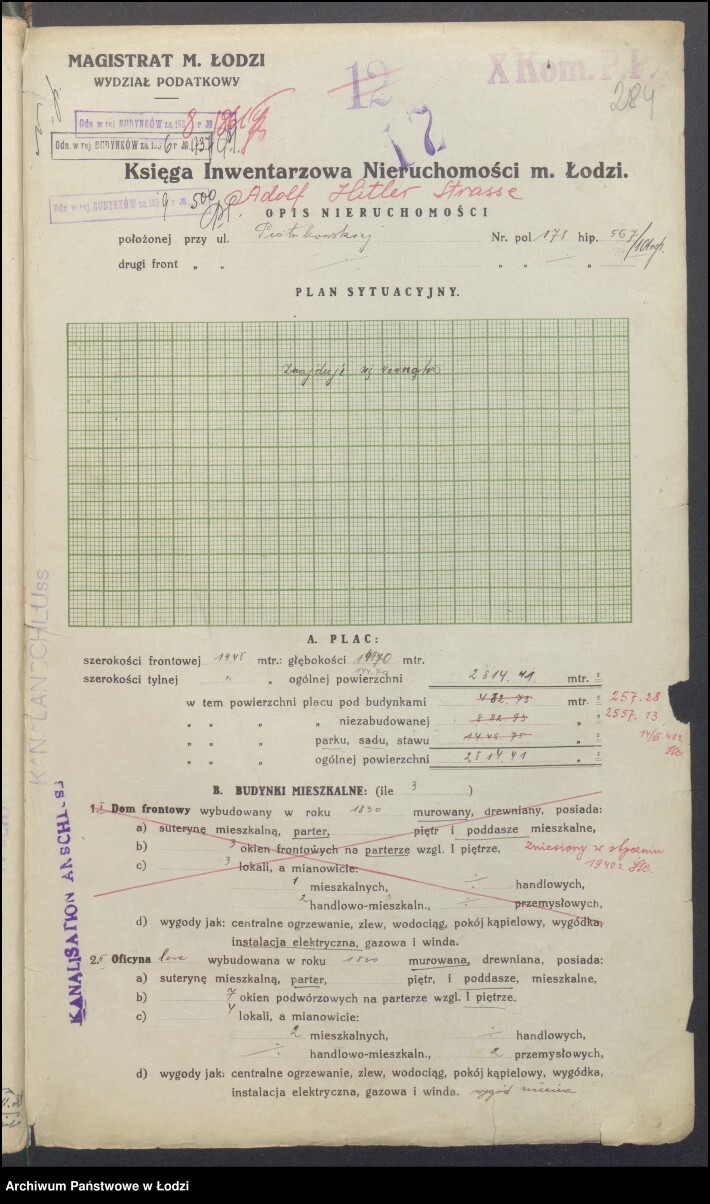 MAGISTRAT M. ŁODZI
WYDZIAŁ PODATKOWY
12
X Kom. P.P.
284
Odn. w rej BUDYNKÓW za 193 8 r №
Odn. w rej BUDYNKÓW za 193 6 r № 737
17
Księga Inwentarzowa Nieruchomości m. Łodzi.
Odn. w rej BUDYNKÓW za 193 9 r № 500
Adolf Hitler Strasse
OPIS NIERUCHOMOŚCI
położonej przy ul. Piotrkowskiej Nr. pol 178 hip. 567
drugi front „ „ „ „ „
PLAN SYTUACYJNY.
Znajduje się wewnątrz
A. PLAC:
szerokości frontowej 1945 mtr.: głębokości mtr.
szerokości tylnej „ „ ogólnej powierzchni 2814.41 mtr. ²
w tem powierzchni placu pod budynkami 432.75 mtr. ² 257.28
„ „ „ „ niezabudowanej 882.93 „ ² 2557.13
„ „ „ parku, sadu, stawu 1448.75 „ ²
„ „ „ ogólnej powierzchni 2814.41 „ ²
B. BUDYNKI MIESZKALNE: (ile 3 )
1. Dom frontowy wybudowany w roku 1830 murowany, drewniany, posiada:
a) suterynę mieszkalną, parter, piętr i poddasze mieszkalne,
b) 3 okien frontowych na parterze wzgl. I piętrze, Zniesiony w styczniu
1940 r.
c) 3 lokali, a mianowicie:
1 mieszkalnych, ÷ handlowych,
2 handlowo-mieszkaln., ÷ przemysłowych,
d) wygody jak: centralne ogrzewanie, zlew, wodociąg, pokój kąpielowy, wygódka,
instalacja elektryczna, gazowa i winda.
2. Oficyna lewa wybudowana w roku 1830 murowana, drewniana, posiada:
a) suterynę mieszkalną, parter, piętr, i poddasze, mieszkalne,
b) 7 okien podwórzowych na parterze wzgl. I piętrze.
c) 4 lokali, a mianowicie:
2 mieszkalnych, ÷ handlowych,
÷ handlowo-mieszkaln., 2 przemysłowych,
d) wygody jak: centralne ogrzewanie, zlew, wodociąg, pokój kąpielowy, wygódka,
instalacja elektryczna, gazowa i winda. wygód niema
KANALANSCHLUSS
KANALISATION ANSCHLUSS
Archiwum Państwowe w Łodzi